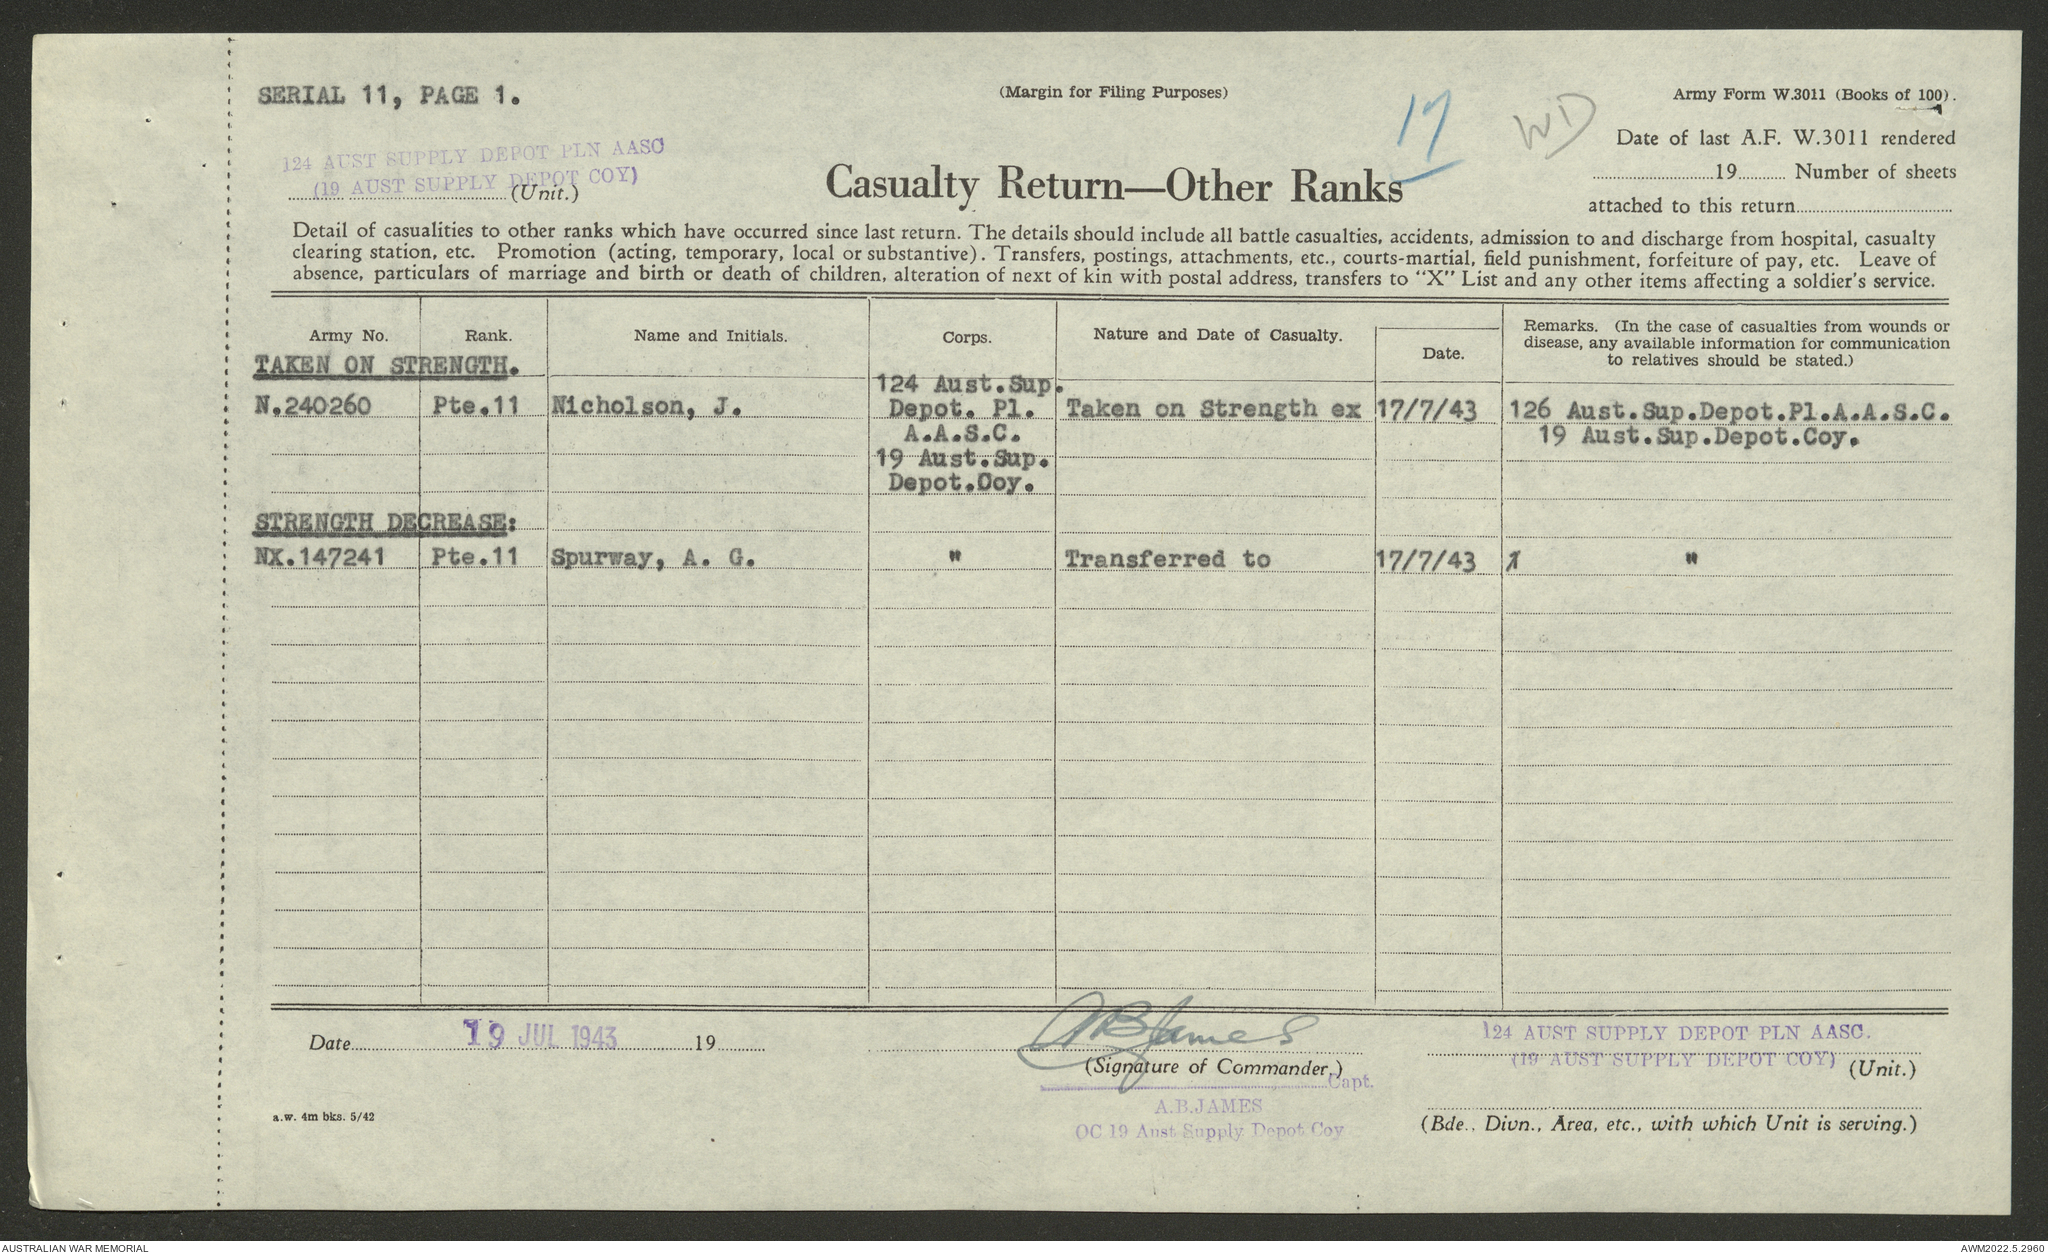 SERIAL 11, PAGE 1.
(Margin for Filing Purposes)
17
WD
Army Form W.3011 (Books of 100).
Date of last A.F. W.3011 rendered
19 Number of sheets
attached to this return
124 AUST SUPPLY DEPOT PLN AASC
(19 AUST SUPPLY DEPOT COY)
(Unit.)
Casualty Return—Other Ranks
Detail of casualities to other ranks which have occurred since last return. The details should include all battle casualties, accidents, admission to and discharge from hospital, casualty
clearing station, etc. Promotion (acting, temporary, local or substantive). Transfers, postings, attachments, etc., courts-martial, field punishment, forfeiture of pay, etc. Leave of
absence, particulars of marriage and birth or death of children, alteration of next of kin with postal address, transfers to "X" List and any other items affecting a soldier's service.
Army No. Rank. Name and Initials. Corps. Nature and Date of Casualty. Date. Remarks. (In the case of casualties from wounds or
disease, any available information for communication
to relatives should be stated.)
TAKEN ON STRENGTH.
124 Aust.Sup.
N.240260 Pte.11 Nicholson, J. Depot. Pl. Taken on Strength ex 17/7/43 126 Aust.Sup.Depot.Pl.A.A.S.C.
A.A.S.C. 19 Aust.Sup.Depot.Coy.
19 Aust.Sup.
Depot.Coy.
STRENGTH DECREASE:
NX.147241 Pte.11 Spurway, A. G. " Transferred to 17/7/43 "
Date 19 JUL 1943 19
A B James
(Signature of Commander.)
Capt.
A.B.JAMES
OC 19 Aust Supply Depot Coy
124 AUST SUPPLY DEPOT PLN AASC.
(19 AUST SUPPLY DEPOT COY)
(Unit.)
(Bde., Divn., Area, etc., with which Unit is serving.)
a.w. 4m bks. 5/42
AUSTRALIAN WAR MEMORIAL
AWM2022.5.2960